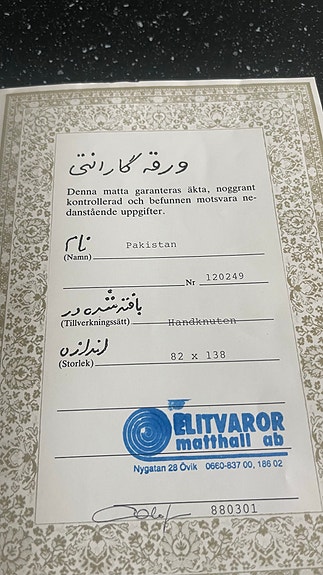 ورقه گارانتی
Denna matta garanteras äkta, noggrant
kontrollerad och befunnen motsvara ne-
danstående uppgifter.
نام
(Namn) Pakistan
Nr 120249
بافته شده در
(Tillverkningssätt) Handknuten
اندازه
(Storlek) 82 x 138
ELITVAROR
matthall ab
Nygatan 28 Övik 0660-837 00, 186 02
880301